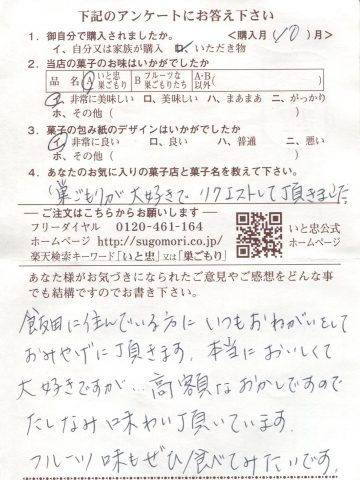 下記のアンケートにお答え下さい
1．御自分で購入されましたか。 <購入月(10)月>
イ、自分又は家族が購入 ロ、いただき物
2．当店の菓子のお味はいかがでしたか
品名 A いと忠巣ごもり B フルーツな巣ごもりたち A・B以外( )
イ、非常に美味しい ロ、美味しい ハ、まあまあ ニ、がっかり
ホ、その他( )
3．菓子の包み紙のデザインはいかがでしたか
イ、非常に良い ロ、良い ハ、普通 ニ、悪い
ホ、その他( )
4．あなたのお気に入りの菓子店と菓子名を教えて下さい。
(巣ごもりが大好きで リクエストして頂きました)
―ご注文はこちらからお願いします―
フリーダイヤル 0120-461-164
ホームページ http://sugomori.co.jp/
楽天検索キーワード「いと忠」又は「巣ごもり」
いと忠公式
ホームページ
あなた様がお気づきになられたご意見やご感想をどんな事
でも結構ですのでお書き下さい。
飯田に住んでいる方に いつもおねがいをして
おみやげに頂きます。本当においしくて
大好きですが…高額なおかしですので
たしなみ味わい頂いています。
フルーツ味もぜひ食べてみたいです。